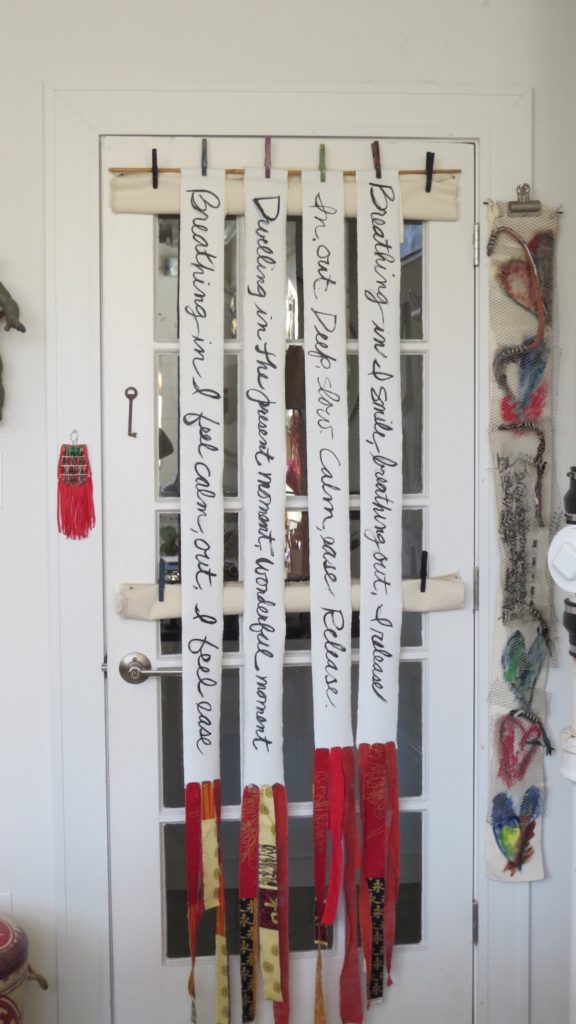 Breathing in I feel calm, out, I feel ease
Dwelling in the present moment, Wonderful moment
In, out. Deep, slow. Calm, ease Release.
Breathing in I smile, breathing out, I release